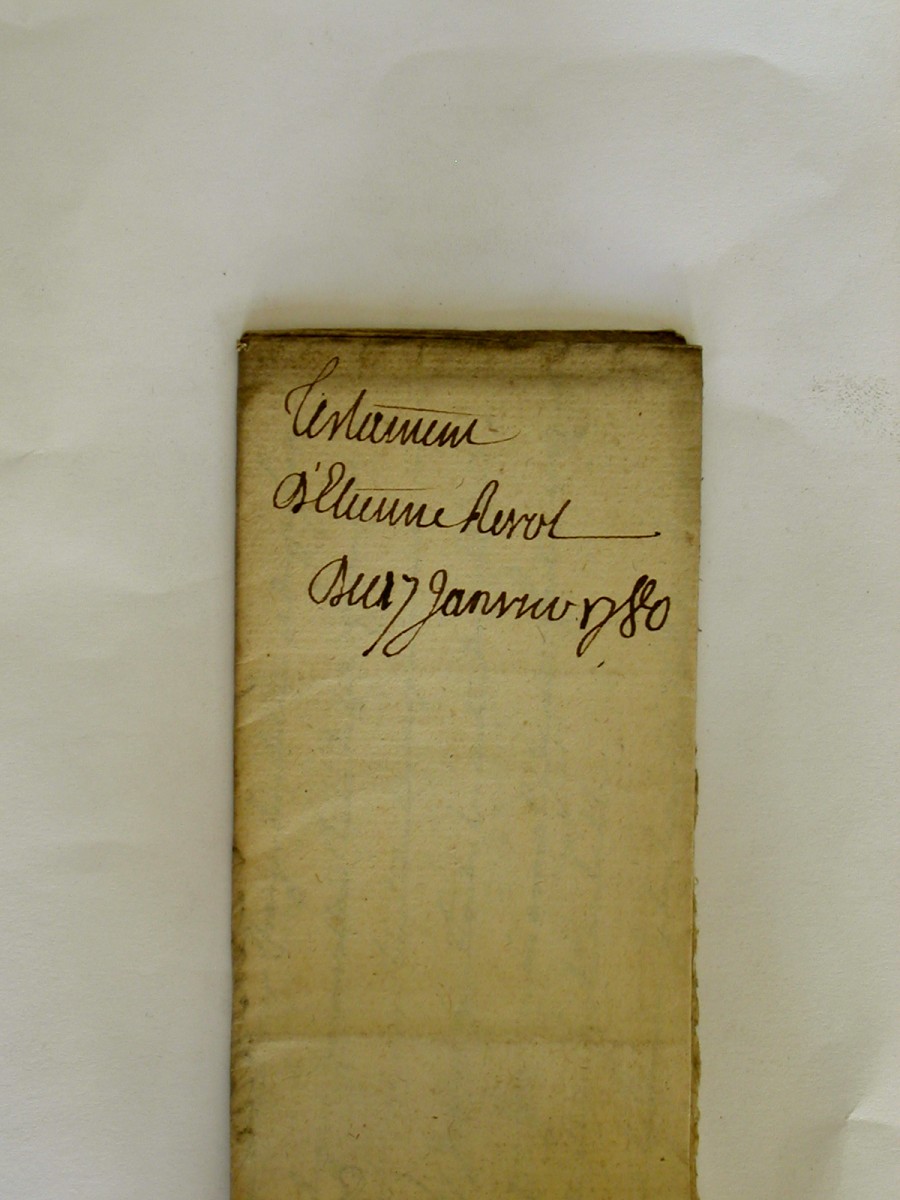 Testament
D'Etienne Revol
Du 17 Janvier 1780